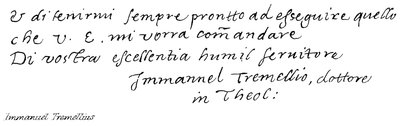 V ditenirmi sempre prontto ad esseguire quello
che v. E. mi vorra com̃andare
Di vostra escellentia humil servitore
Immannel Tremellio, dottore
in Theol:
Immanuel Tremellius